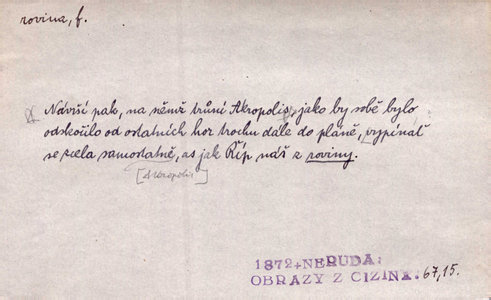 rovina, f.
Návrší pak, na němž trůní Akropolis, jako by sobě bylo
odskočilo od ostatních hor trochu dále do pláně, vypínať
se zcela samostatně, as jak Říp náš z roviny.
[Akropolis]
1872+NERUDA:
OBRAZY Z CIZINY. 67,15.